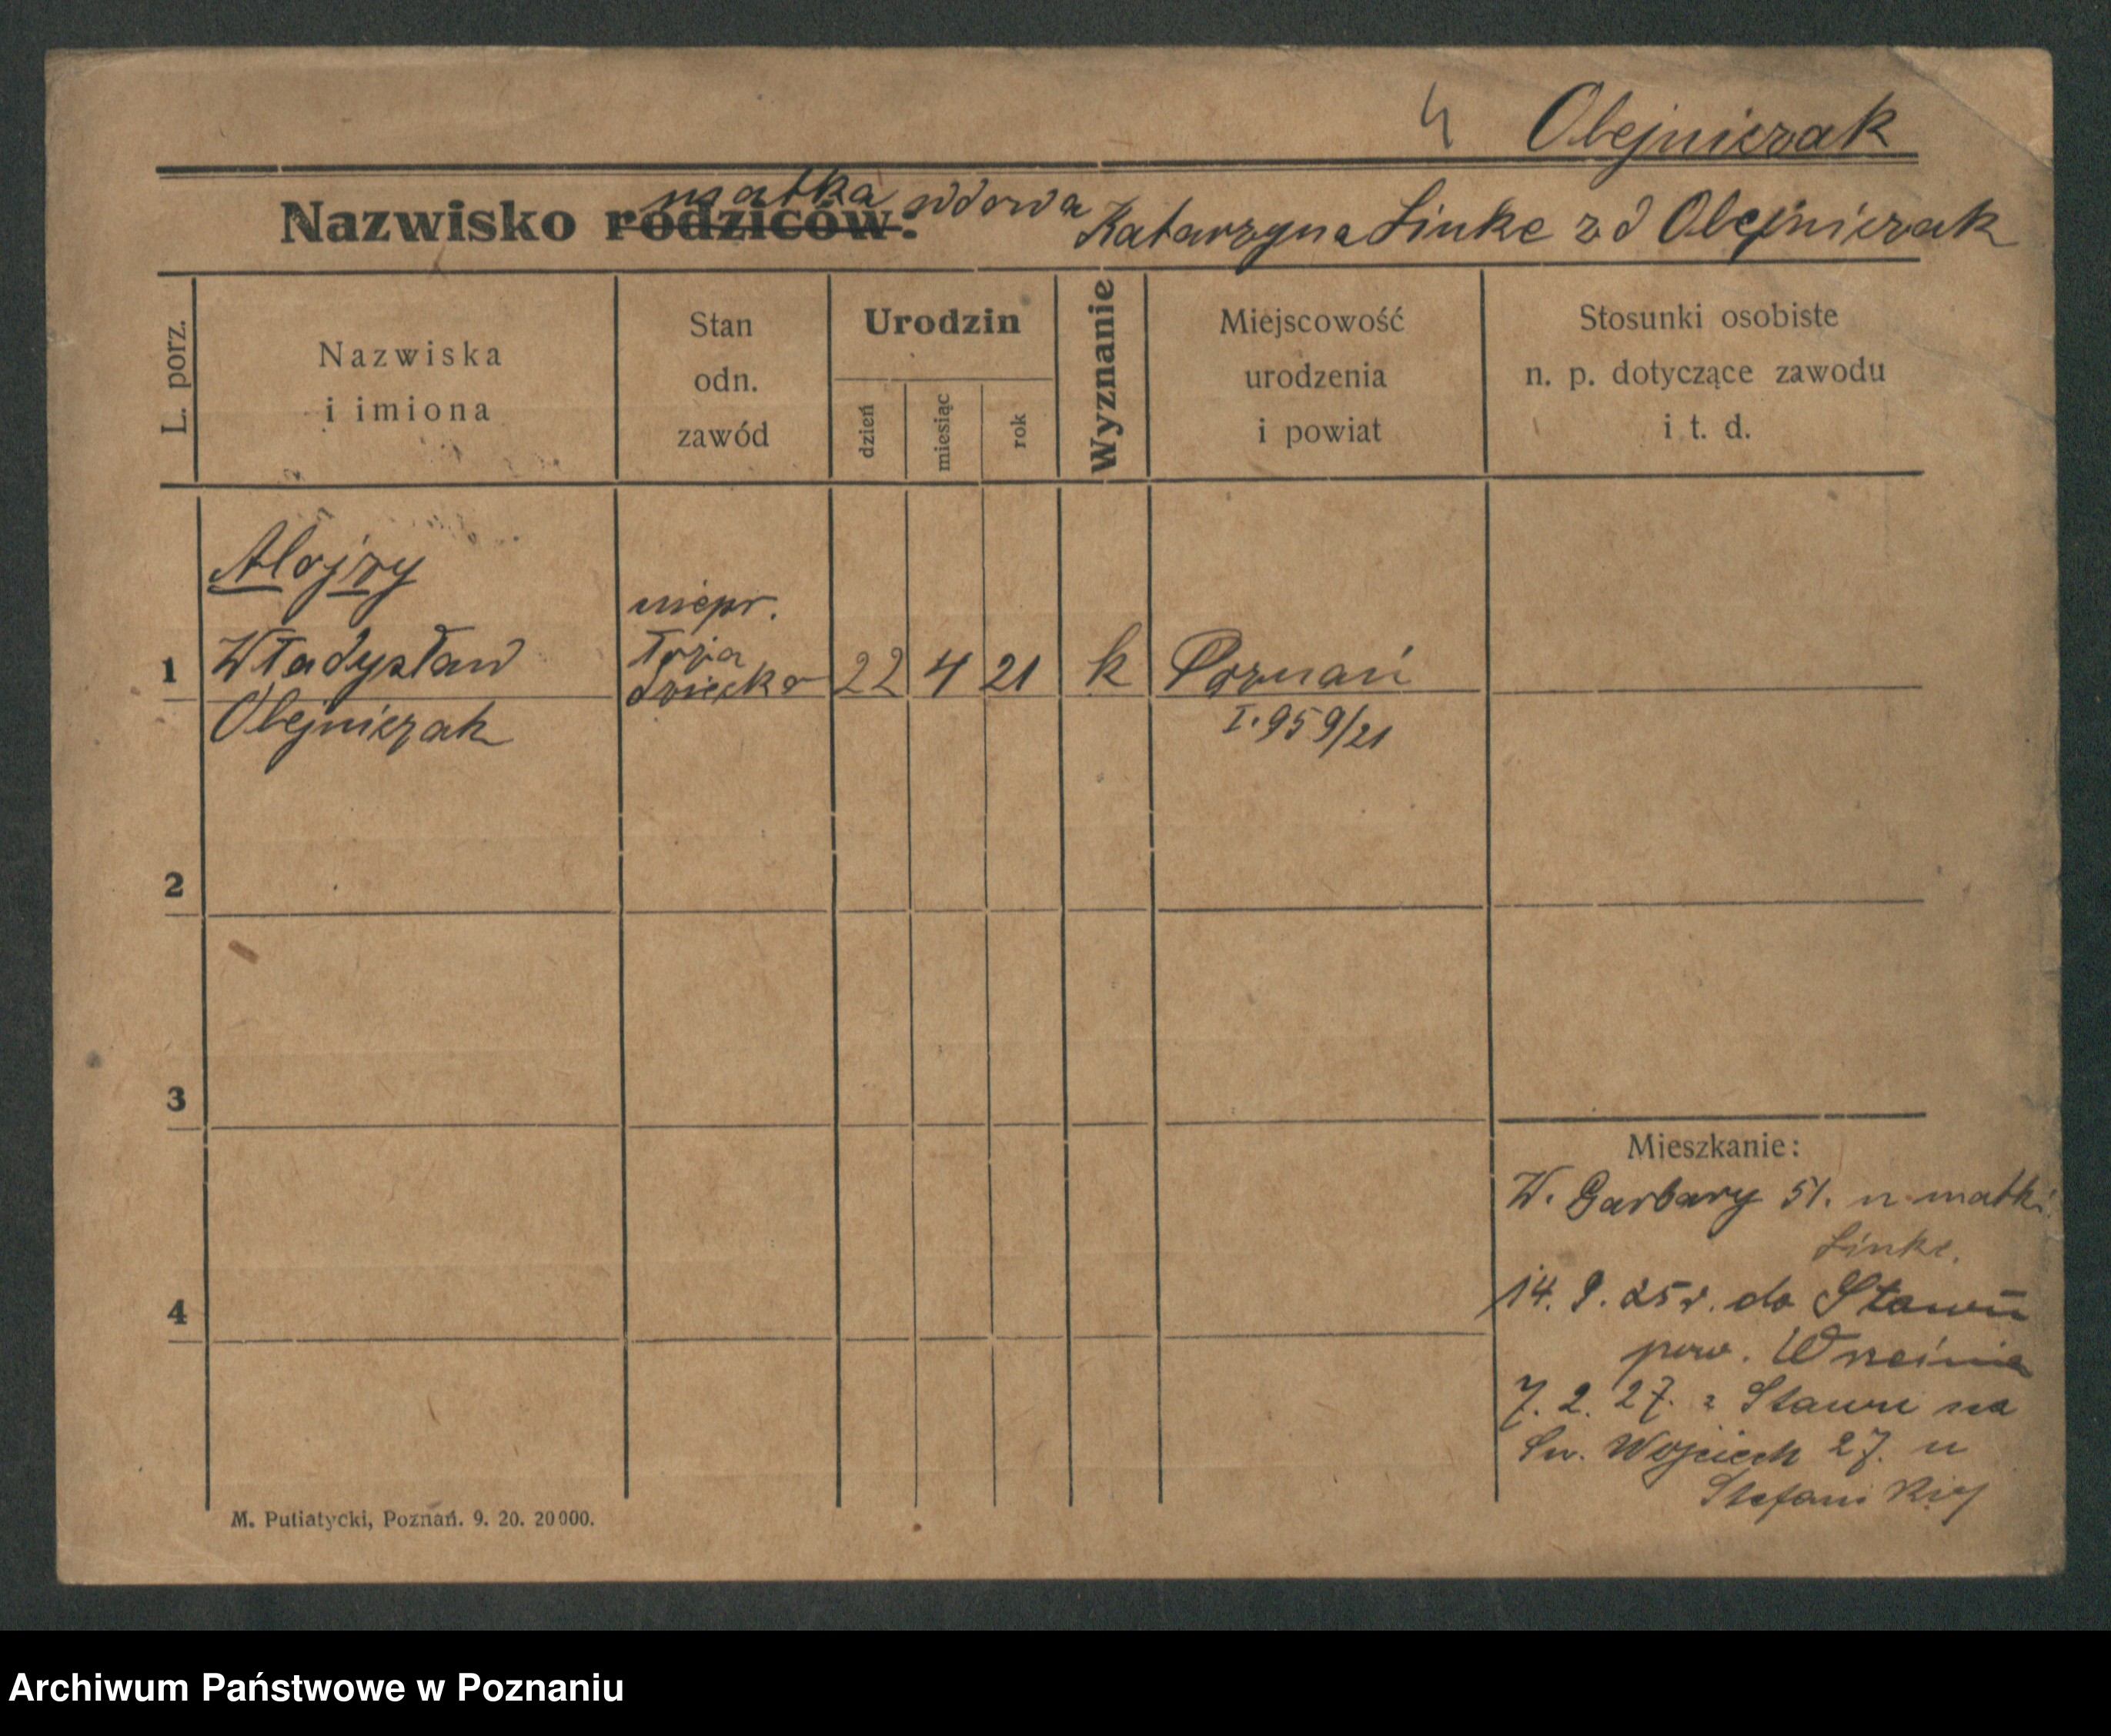 4 Olejniczak
matka wdowa
Nazwisko rodziców: Katarzyna Linke zd Olejniczak
L. porz.
Nazwiska
i imiona
Stan
odn.
zawód
Urodzin
dzień
miesiąc
rok
Wyznanie
Miejscowość
urodzenia
i powiat
Stosunki osobiste
n. p. dotyczące zawodu
i t. d.
1
Alojzy
Władysław
Olejniczak
niepr.
dziecko
22 4 21 k Poznań
I. 959/21
2
3
4
Mieszkanie:
W. Garbary 51. u matki
Linke.
14. 9. 25 r. do Stawu
pow. Września
7. 2. 27. z Stawu na
Św. Wojciech 27. u
Stefani
M. Putiatycki, Poznań. 9. 20. 20000.
Archiwum Państwowe w Poznaniu